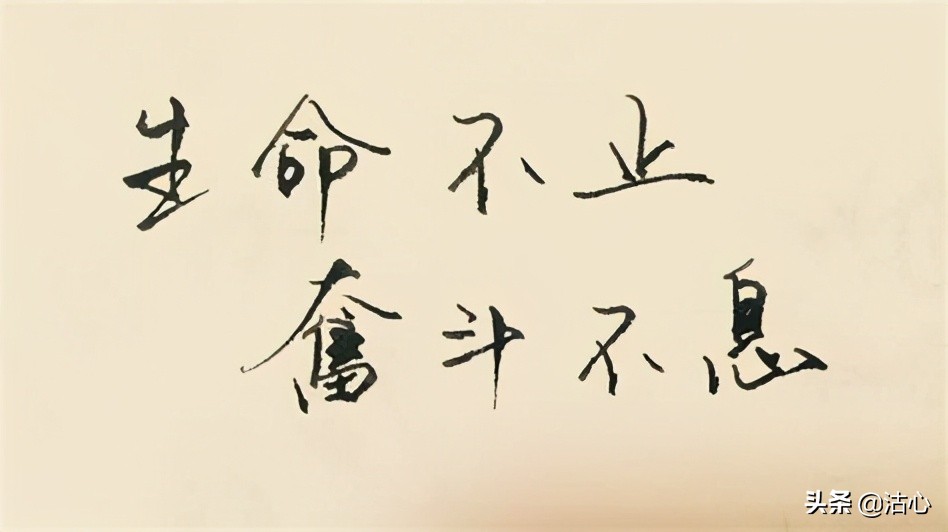 生命不止
奮斗不息
头条 @沽心